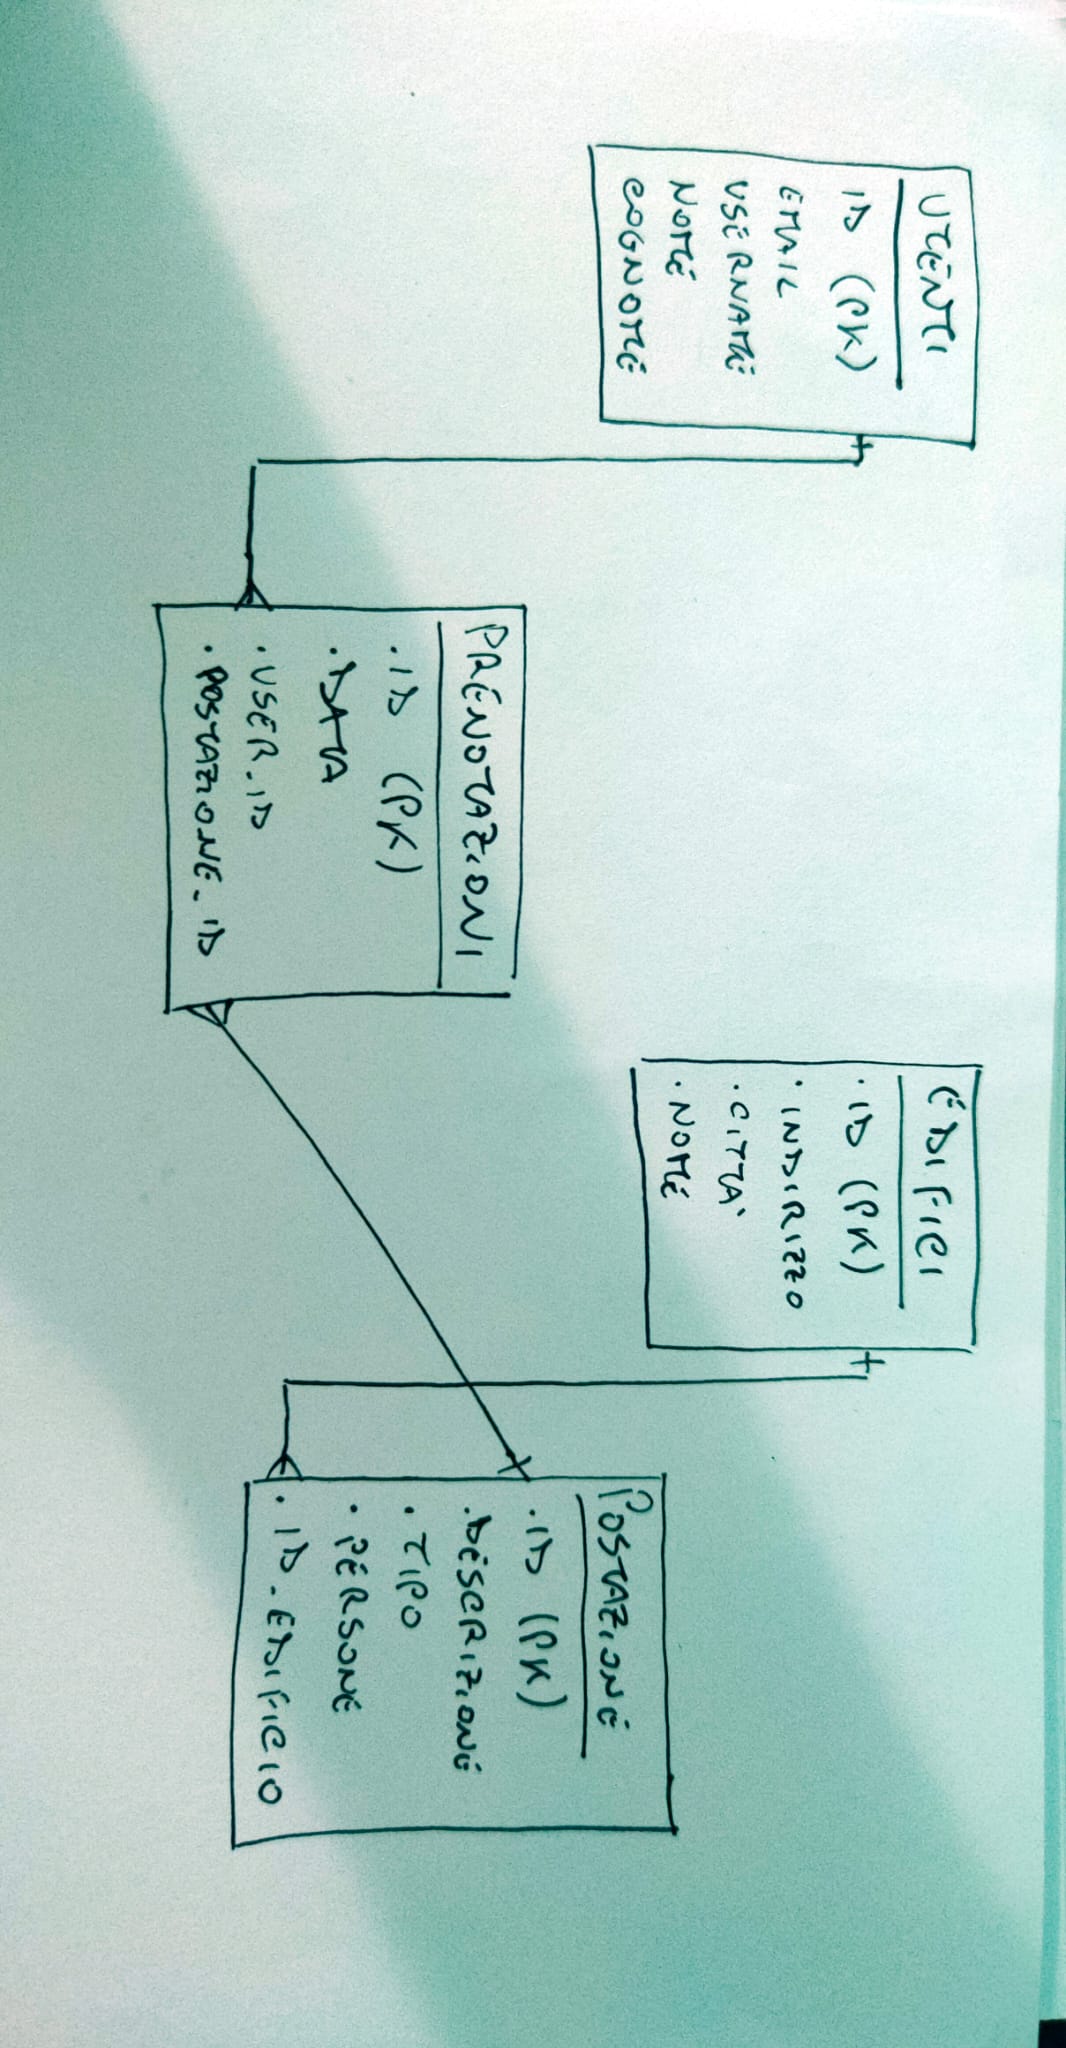 UTENTI
ID (PK)
EMAIL
USERNAME
NOME
COGNOME
EDIFICI
· ID (PK)
· INDIRIZZO
· CITTA'
· NOME
PRENOTAZIONI
· ID (PK)
· DATA
· USER_ID
· POSTAZIONE_ID
POSTAZIONE
· ID (PK)
· DESCRIZIONE
· TIPO
· PERSONE
· ID_EDIFICIO